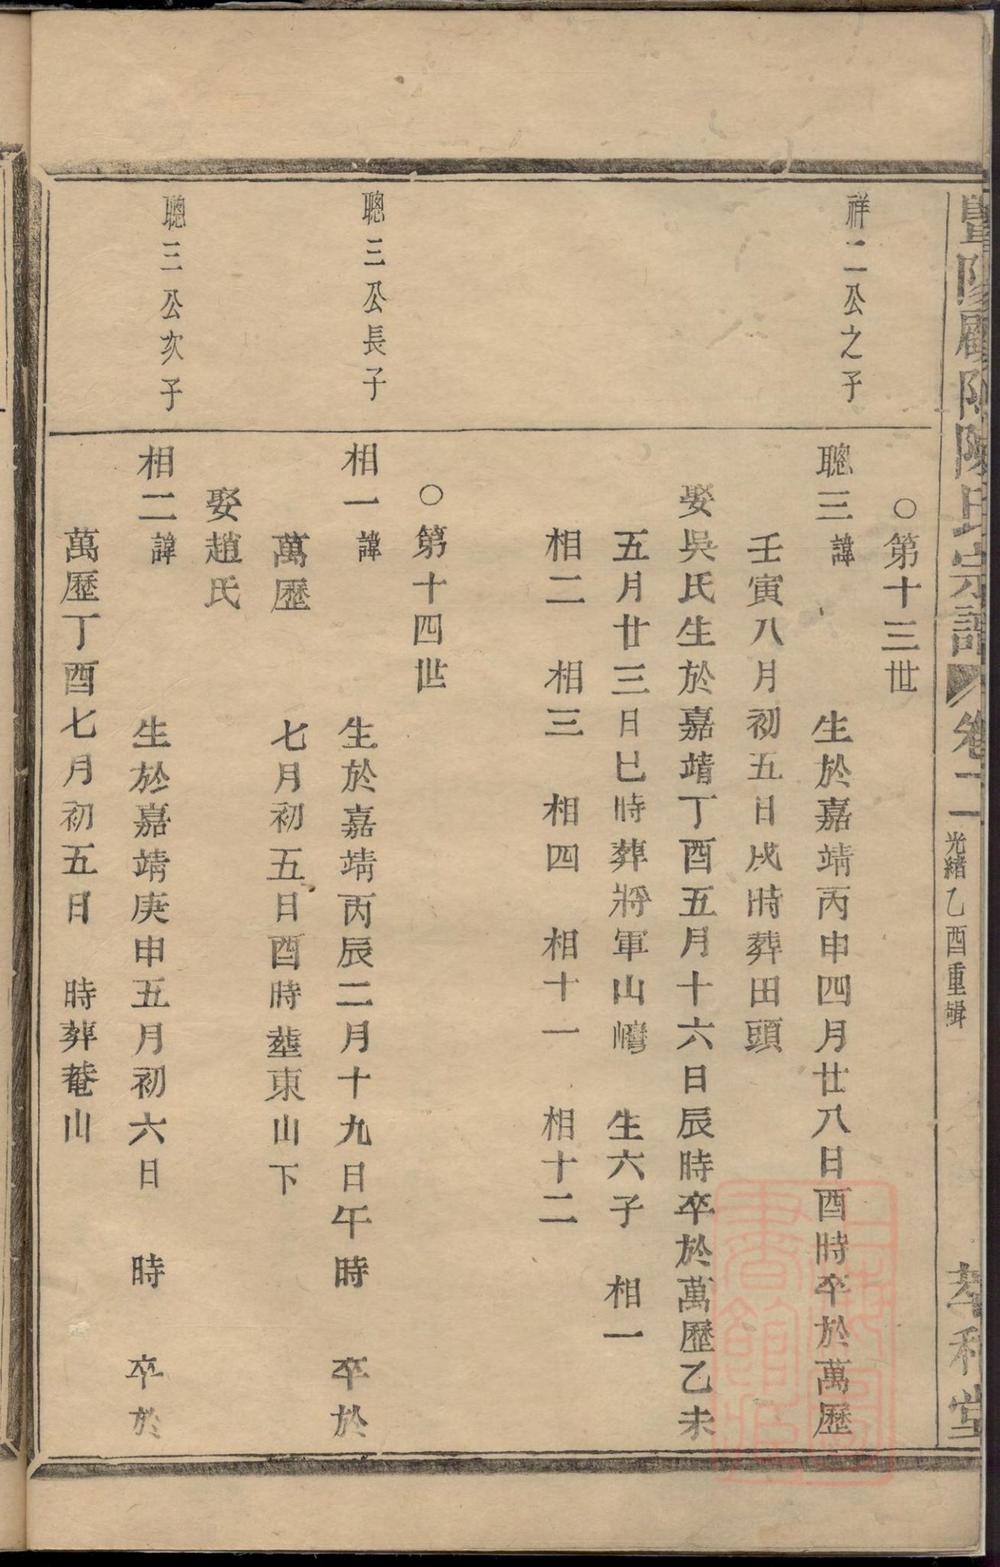 暨陽 陳氏宗譜 卷二 光緒乙酉重輯 和堂
○第十三世
祥二公之子
聰三諱 生於嘉靖丙申四月廿八日酉時卒於萬歷
壬寅八月初五日戌時葬田頭
娶吳氏生於嘉靖丁酉五月十六日辰時卒於萬歷乙未
五月廿三日巳時葬將軍山 生六子 相一
相二 相三 相四 相十一 相十二
○第十四世
聰三公長子
相一諱 生於嘉靖丙辰二月十九日午時 卒於
萬歷 七月初五日酉時塟東山下
娶趙氏
聰三公次子
相二諱 生於嘉靖庚申五月初六日 時 卒於
萬歷丁酉七月初五日 時葬菴山